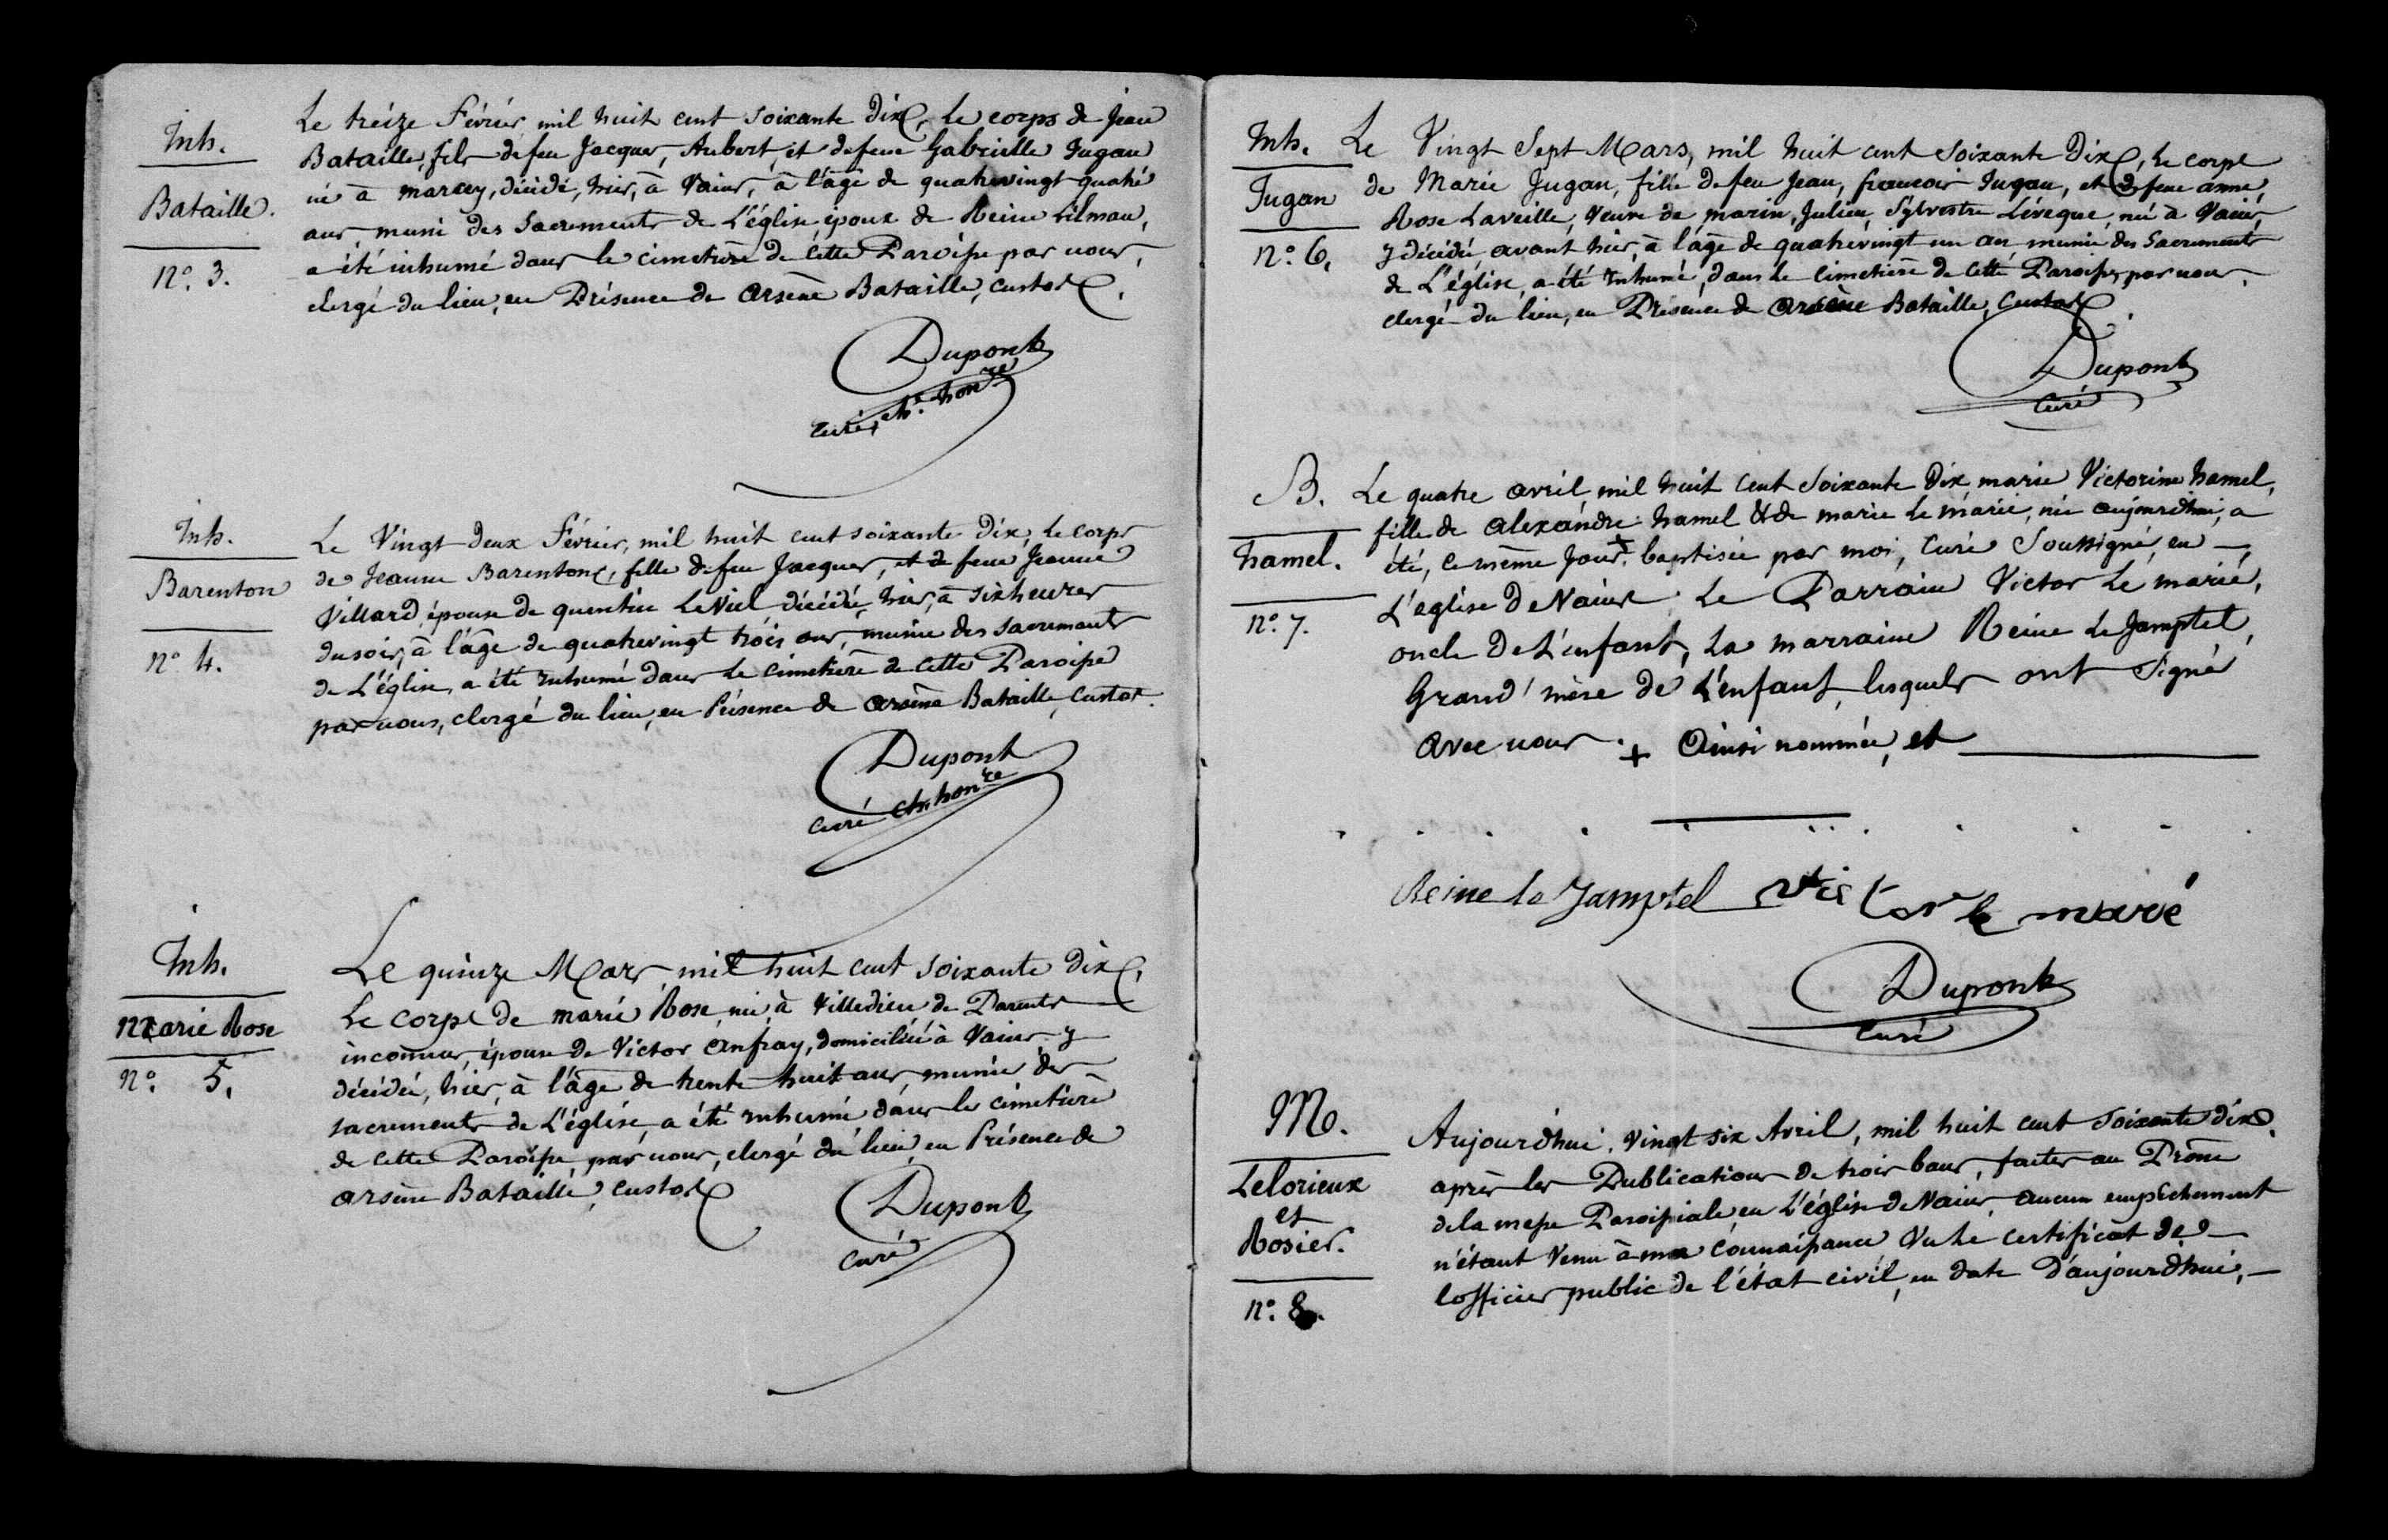 Inh.
Bataille.
N° 3.
Le treize Février, mil huit cent soixante Dix, le corps de Jean
Bataille, fils de feu Jacques, Aubert, et de feue Gabrielle Jugan
né à Marcey, décédé, hier, à Vains, à l'âge de quatrevingt quatre
ans, muni des Sacrements de L'église, époux de Reine
a été inhumé dans le cimetière de Cette Paroisse par nous,
clergé du lieu, en Présence de Arsène Bataille, custos.
Dupont
curé, ch. honre
Inh.
Barenton
N° 4.
Le Vingt deux Février, mil huit cent soixante Dix, le corps
de Jeanne Barenton, fille de feu Jacques, et de feue Jeanne
Villard, épouse de quentin LeViel décédée, hier, à six heures
du soir, à l'âge de quatrevingt trois ans, munie des Sacrements
de L'église, a été inhumé dans le Cimetière de Cette Paroisse
par nous, clergé du lieu, en Présence de Arsène Bataille, Custos.
Dupont
curé ch. honre
Inh.
Marie Rose
N° 5.
Le quinze Mars, mil huit cent soixante dix,
Le corps de Marie Rose, née à Villedieu de Parents
inconnus, épouse de Victor Anfray, domiciliée à Vains, y
décédée, hier, à l'âge de trente huit ans, munie des
sacrements de L'église, a été inhumé dans le cimetière
de Cette Paroisse, par nous, clergé du lieu, en Présence de
Arsène Bataille, custos
Dupont
Curé
Inh.
Jugan
N° 6.
Le Vingt Sept Mars, mil huit cent soixante Dix, le corps
de Marie Jugan, fille de feu Jean, françois Jugan, et de feue anne,
Rose Laveille, Veuve de marin, Julien, Sylvestre Lévêque, née à Vains,
y décédée, avant hier, à l'âge de quatrevingt un an munie des Sacrements
de L'église, a été inhumé, dans le Cimetière de Cette Paroisse, par nous,
clergé du lieu, en Présence de Arsène Bataille, Custos.
Dupont
Curé
B.
hamel.
N° 7.
Le quatre avril, mil huit cent Soixante Dix, marie Victorine hamel,
fille de Alexandre hamel & de marie le marié, née aujourdhui, a
été, le même Jour, + baptisée par moi, Curé Soussigné, en
L'eglise de Vains. Le Parrain Victor Le marié,
oncle de L'enfant, La marraine Reine Le Jamptel,
Grand'mère de L'enfant, lesquels ont signé
avec nous. + Ainsi nommée, et
Reine le Jamptel Victor le marié
Dupont
Curé
M.
Lelorieux
et
Rosier.
N° 8.
Aujourdhui, vingt six Avril, mil huit cent Soixante dix,
après les Publications de trois bans, faites au Prône
de la messe Paroissiale, en L'église de Vains, aucun empêchement
n'étant Venu à ma connaissance Vu le certificat de
l'officier public de l'état civil, en date D'aujourdhui,